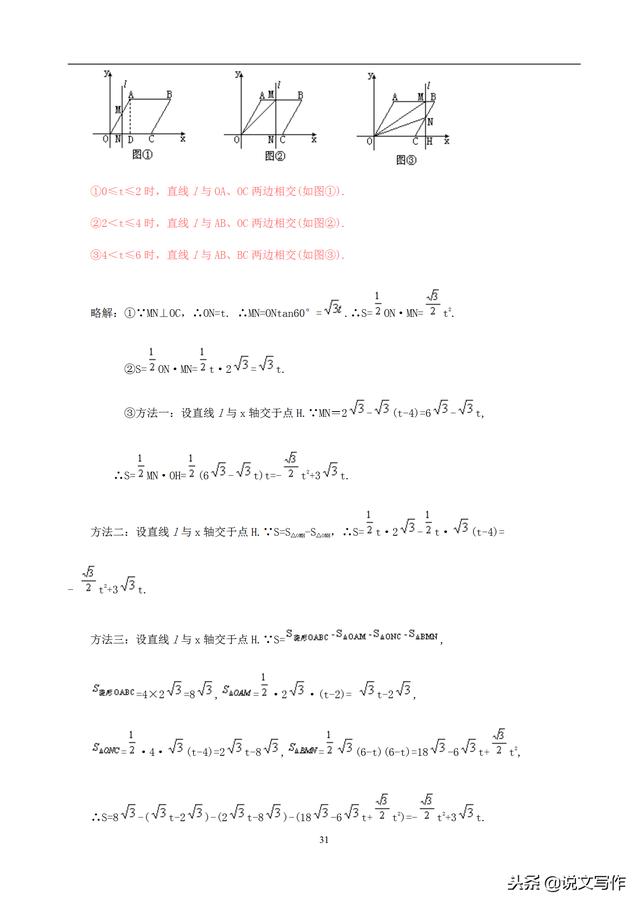 y l A B M O N D C x
图①
y l A M B O N C x
图②
y l A M B N O C H x
图③
①0≤t≤2 时，直线 l 与 OA、OC 两边相交(如图①).
②2<t≤4 时，直线 l 与 AB、OC 两边相交(如图②).
③4<t≤6 时，直线 l 与 AB、BC 两边相交(如图③).
略解：①∵MN⊥OC，∴ON=t. ∴MN=ONtan60°=√3t.∴S=1/2 ON·MN=√3/2 t².
②S=1/2 ON·MN=1/2 t·2√3=√3 t.
③方法一：设直线 l 与 x 轴交于点 H.∵MN＝2√3-√3(t-4)=6√3-√3 t,
∴S=1/2 MN·OH=1/2(6√3-√3 t)t=-√3/2 t²+3√3 t.
方法二：设直线 l 与 x 轴交于点 H.∵S=S△OMH-S△ONH，∴S=1/2 t·2√3-1/2 t·√3(t-4)=
-√3/2 t²+3√3 t.
方法三：设直线 l 与 x 轴交于点 H.∵S=S菱形OABC-S△OAM-S△ONC-S△BMN,
S菱形OABC=4×2√3=8√3,S△OAM=1/2·2√3·(t-2)=√3 t-2√3,
S△ONC=1/2·4·√3(t-4)=2√3 t-8√3,S△BMN=1/2√3(6-t)(6-t)=18√3-6√3 t+√3/2 t²,
∴S=8√3-(√3 t-2√3)-(2√3 t-8√3)-(18√3-6√3 t+√3/2 t²)=-√3/2 t²+3√3 t.
31
头条 @说文写作